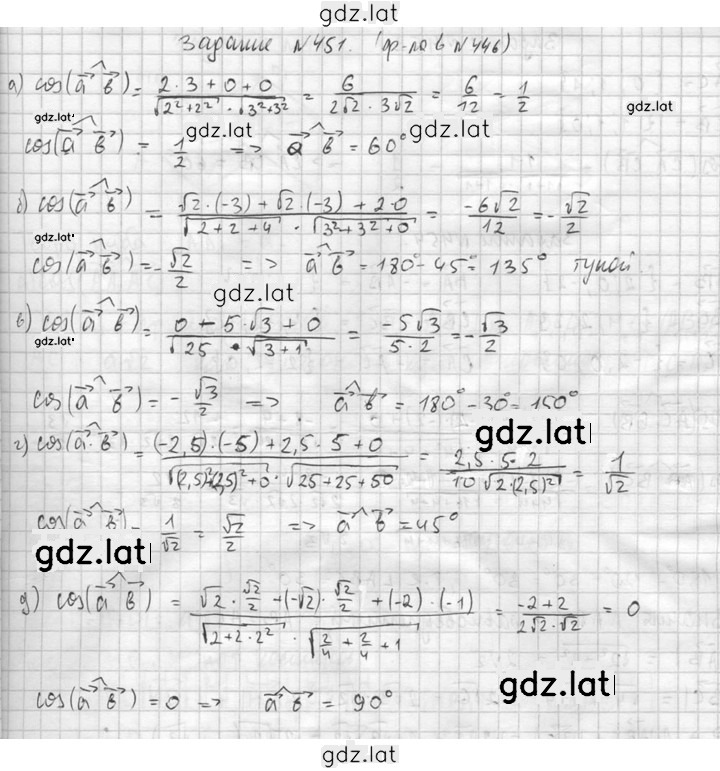 gdz.lat
Задание №451. (ф-ла в №446)
а) cos(a⃗ ^ b⃗) = (2·3+0+0)/(√(2²+2²) · √(3²+3²)) = 6/(2√2 · 3√2) = 6/12 = 1/2
gdz.lat gdz.lat gdz.lat
cos(a⃗ ^ b⃗) = 1/2 => a⃗ ^ b⃗ = 60°
б) cos(a⃗ ^ b⃗) = (√2·(-3)+√2·(-3)+2·0)/(√(2+2+4) · √(3²+3²+0)) = -6√2/12 = -√2/2
gdz.lat
cos(a⃗ ^ b⃗) = -√2/2 => a⃗ ^ b⃗ = 180°-45° = 135° тупой
gdz.lat
в) cos(a⃗ ^ b⃗) = (0-5·√3+0)/(√25 · √(3+1)) = -5√3/(5·2) = -√3/2
gdz.lat
cos(a⃗ ^ b⃗) = -√3/2 => a⃗ ^ b⃗ = 180°-30° = 150°
gdz.lat
г) cos(a⃗ ^ b⃗) = ((-2,5)·(-5)+2,5·5+0)/(√((2,5)²+(2,5)²+0) · √(25+25+50)) = (2,5·5·2)/(10√(2·(2,5)²)) = 1/√2
cos(a⃗ ^ b⃗) = 1/√2 = √2/2 => a⃗ ^ b⃗ = 45°
gdz.lat
д) cos(a⃗ ^ b⃗) = (√2·√2/2+(-√2)·√2/2+(-2)·(-1))/(√(2+2·2²) · √(2/4+2/4+1)) = (-2+2)/(2√2·√2) = 0
cos(a⃗ ^ b⃗) = 0 => a⃗ ^ b⃗ = 90°
gdz.lat
gdz.lat